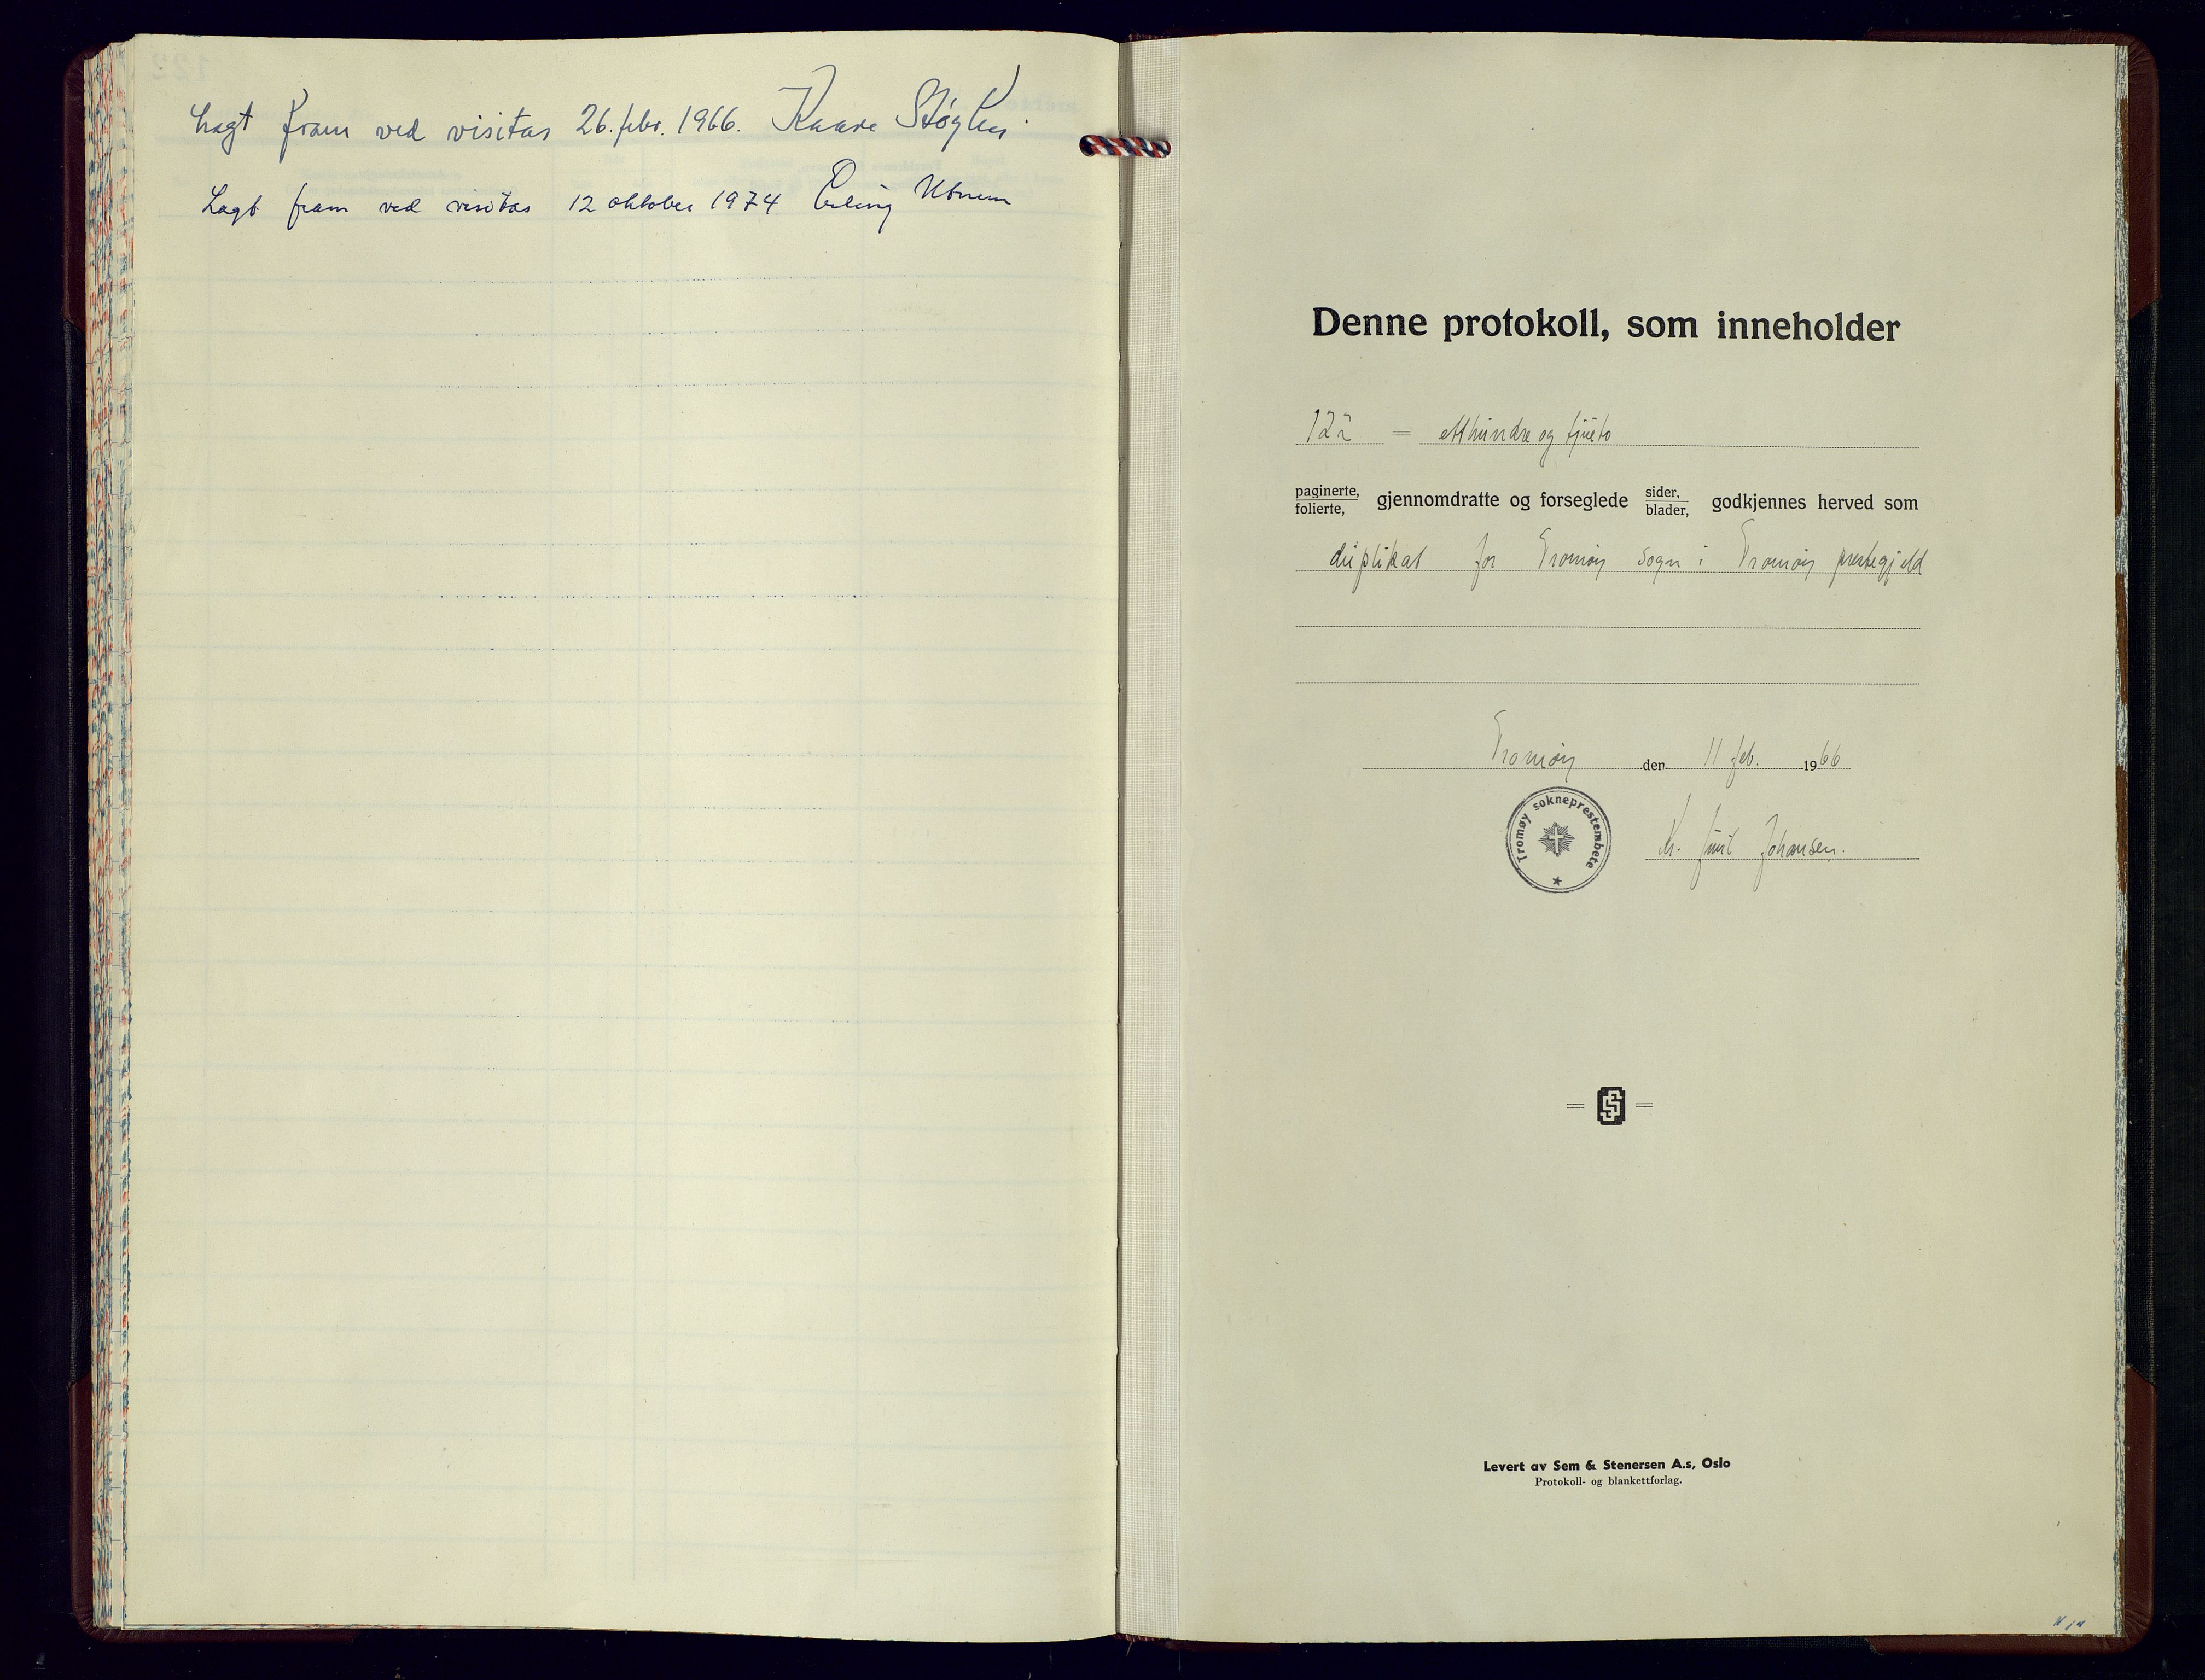 Lagt fram ved visitas 26. febr. 1966. Kaare Støylen
Lagt fram ved visitas 12 oktober 1974 Erling Utnem
Denne protokoll, som inneholder
122 = etthundre og tjueto
paginerte, folierte, gjennomdratte og forseglede sider, blader, godkjennes herved som
duplikat for Tromøy sogn i Tromøy prestegjeld
Tromøy den 11 feb. 1966
Tromøy sokneprestembete
Kr. Juul Johansen.
Levert av Sem & Stenersen A.s, Oslo
Protokoll- og blankettforlag.